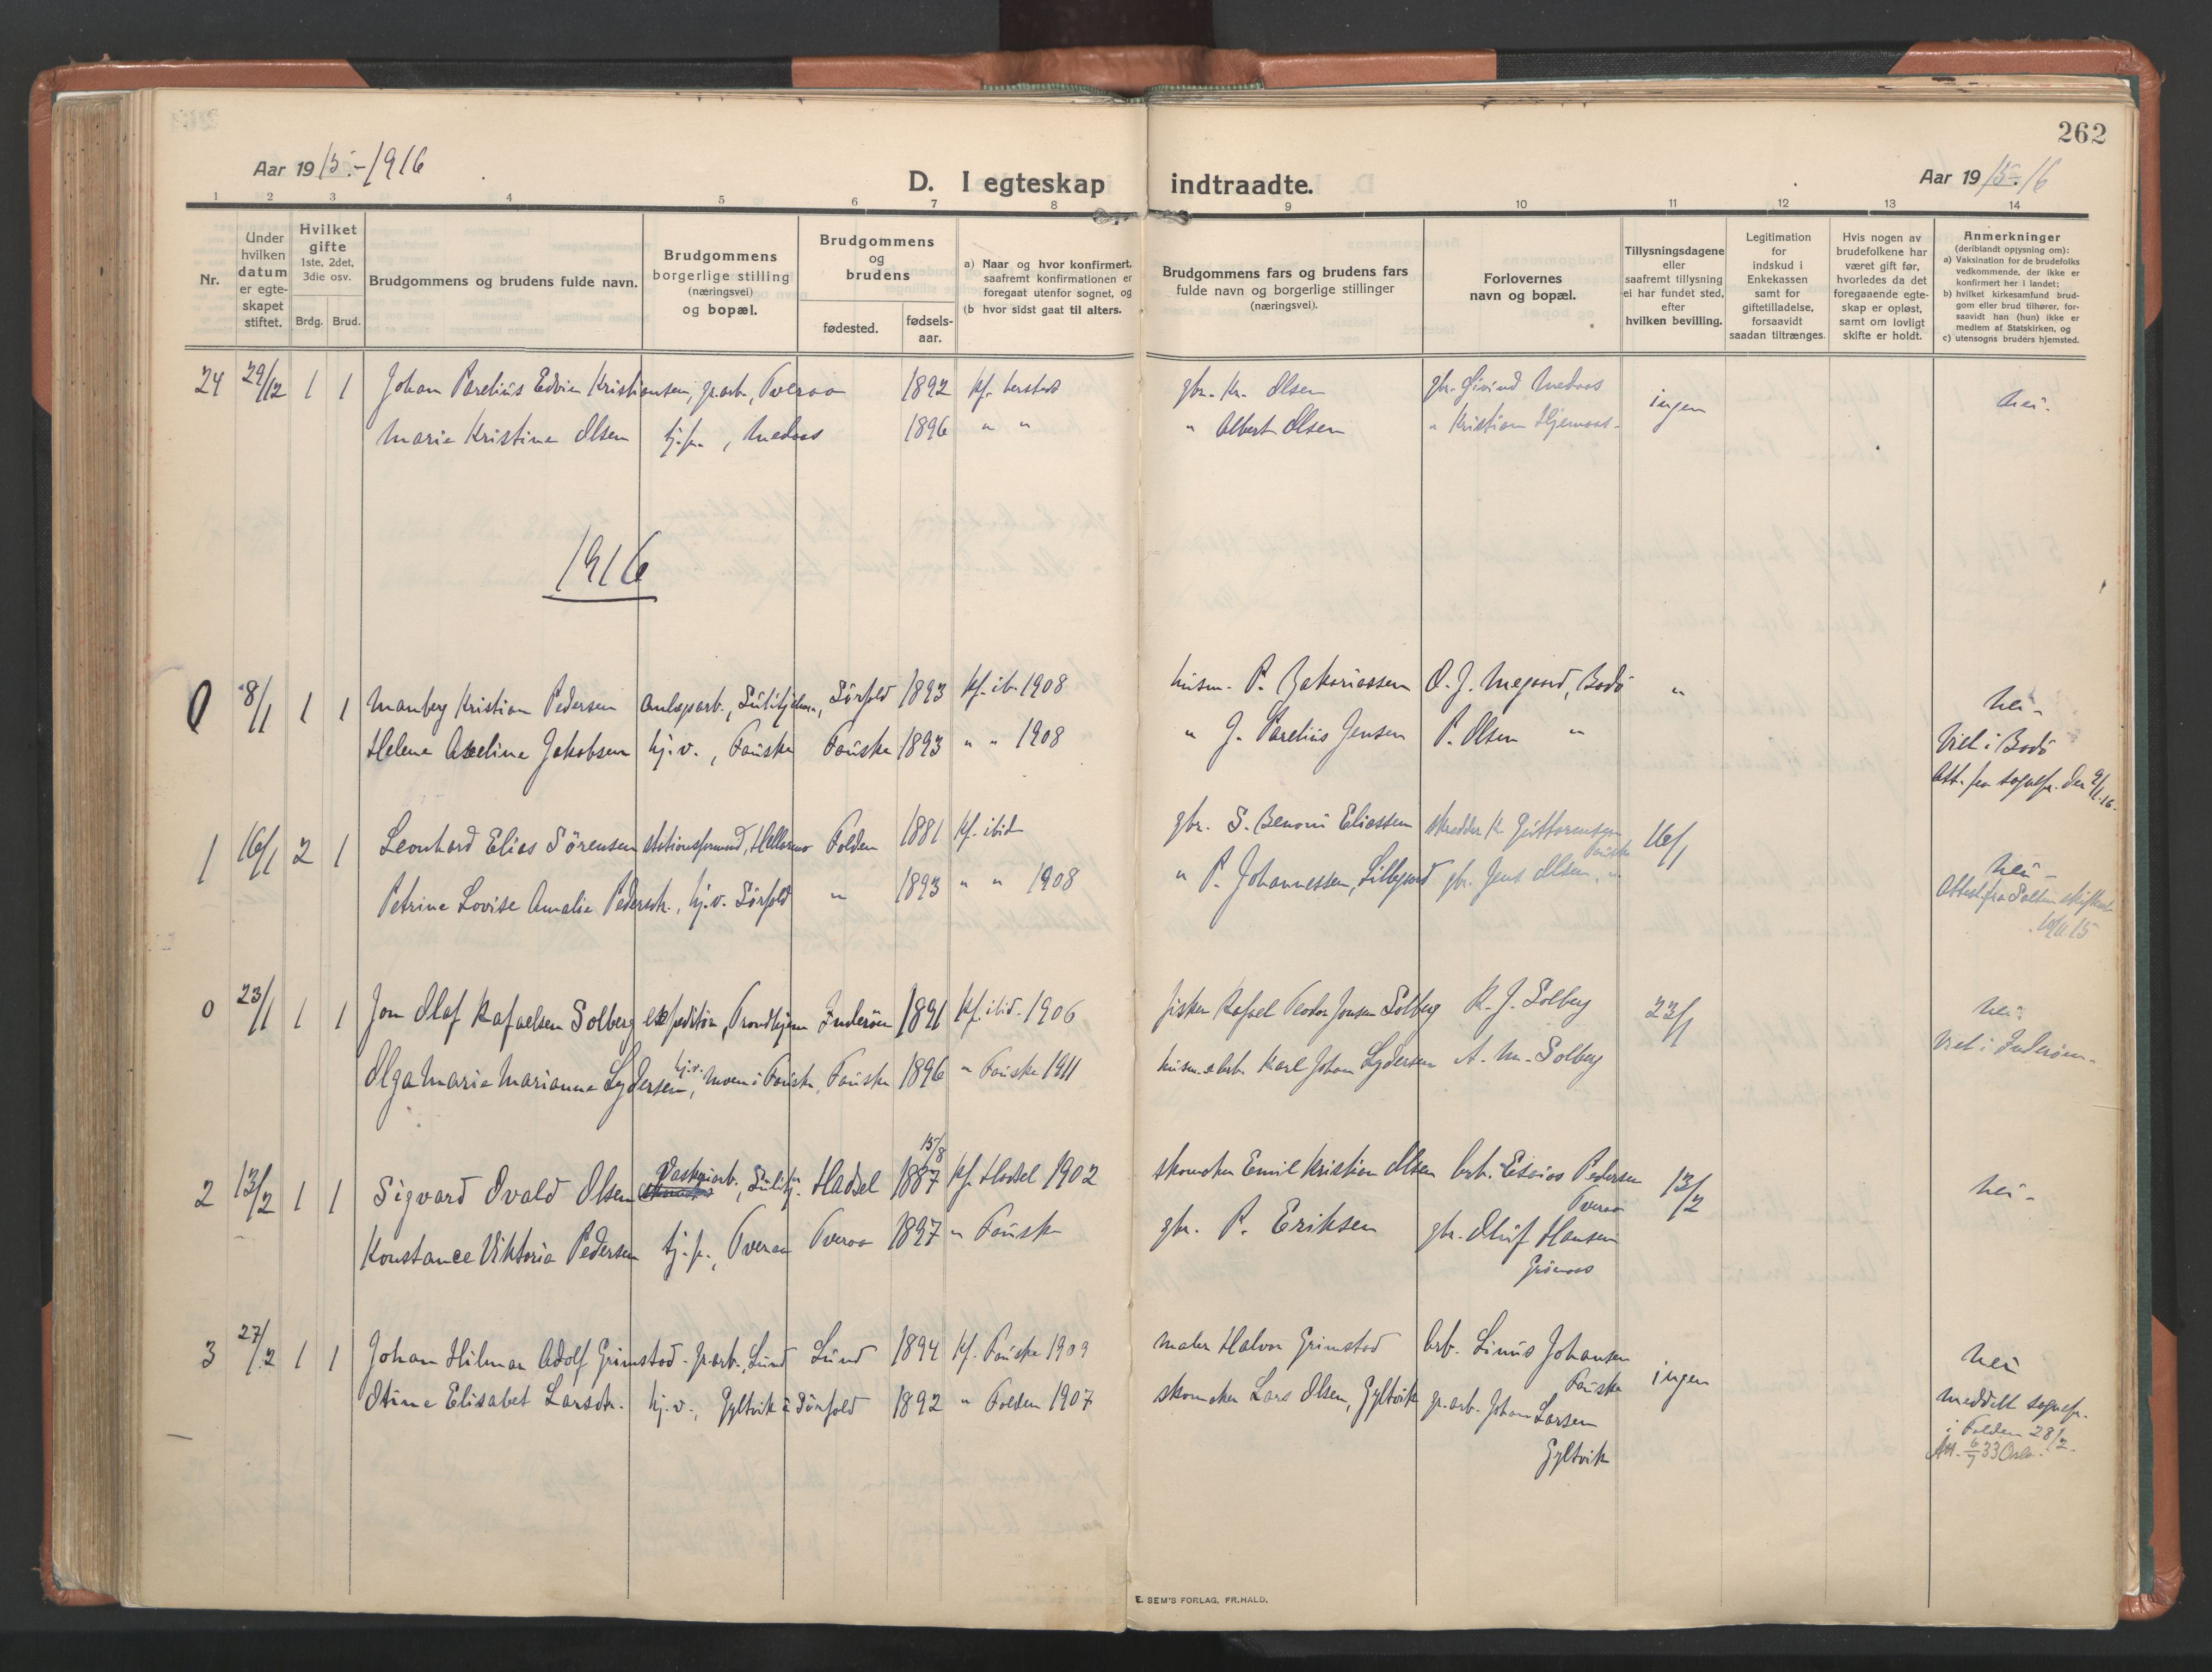 262
Aar 1915-1916
D. I egteskap indtraadte.
Aar 1915-16
1 2 3 4 5 6 7 8 9 10 11 12 13 14
Nr.
Under hvilken datum er egteskapet stiftet.
Hvilket gifte 1ste, 2det, 3die osv.
Brdg. Brud.
Brudgommens og brudens fulde navn.
Brudgommens borgerlige stilling (næringsvei) og bopæl.
Brudgommens og brudens
fødested.
fødsels-aar.
a) Naar og hvor konfirmert, saafremt konfirmationen er foregaat utenfor sognet, og
(b hvor sidst gaat til alters.
Brudgommens fars og brudens fars fulde navn og borgerlige stillinger (næringsvei).
Forlovernes navn og bopæl.
Tillysningsdagene eller saafremt tillysning ei har fundet sted, efter hvilken bevilling.
Legitimation for indskud i Enkekassen samt for giftetilladelse, forsaavidt saadan tiltrænges.
Hvis nogen av brudefolkene har været gift før, hvorledes da det foregaaende egteskap er opløst, samt om lovligt skifte er holdt.
Anmerkninger
(deriblandt oplysning om):
a) Vaksination for de brudefolks vedkommende, der ikke er konfirmert her i landet;
b) hvilket kirkesamfund brudgom eller brud tilhører, forsaavidt han (hun) ikke er medlem af Statskirken, og
c) utensogns bruders hjemsted.
24 29/12 1 1 Johan Parelius Edvin Kristiansen, gr.arb., Tveraa 1892 kf. gbr. Kr. Olsen gbr. Eivind ingen nei.
Marie Kristine Olsen tj.p., 1896 " " " Albert Olsen " Kristian
1916
0 8/1 1 1 Manberg Kristian Pedersen anlæparb., Sulitjelma, Sörfold 1893 kf. ib. 1908 husm. P. Zakariassen O. J. Bodö " nei -
Helene Axeline Jakobsen hj.v., Fauske Fauske 1893 " " 1908 " J. Parelius Jensen P. Olsen " Viet i Bodö
Att. fra sognepr. den 9/1-16.
1 16/1 2 1 Leonhard Elias Sörensen stationsformand, Folden 1881 kf. ibid gbr. S. Benoni Eliassen skredder K. Guttormsen Fauske 16/1
Petrine Lovise Amalie Pedersdtr., hj.v. Sörfold " 1893 " " 1908 " P. Johannessen, Lillegaard gbr. Jens Olsen, " nei -
Attest fra Salten skifteret
10/11 15
0 23/1 1 1 Jon Olaf Rafaelsen Solberg expeditör, Trondhjem Inderöen 1891 kf. ibid. 1906 fisker Rafael Teodor Jonsen Solberg R. J. Solberg 23/1 nei.
Olga Marie Marianne Lydersen, hj.v. Moen i Fauske, Fauske 1896 " Fauske 1911 husm. Karl Johan Lydersen A. M. Solberg Viet i Inderöen.
15/8
2 13/2 1 1 Sigvard Ovald Olsen Vaskeriarb., Sulitj. Hadsel 1887 kf. Hadsel 1902 skomaker Emil Kristian Olsen arb. Esaias Pedersen Tveraa 13/2 nei -
Konstance Viktoria Pedersen tj.p., Tveraa Tveraa 1897 " Fauske gbr. P. Eriksen gbr. Oluf Hansen
Grönaas
3 27/2 1 1 Johan Hilmar Adolf Grimstad gr.arb., Lund Lund 1894 kf. Fauske 1909 maler Halvor Grimstad arb. Linus Johansen Fauske ingen nei
Otine Elisabet Larsdtr. hj.v., Gyltvik i Sörfold 1892 " Folden 1907 skomaker Lars Olsen, Gyltvik gr.arb. Johan Larsen
Gyltvik
meddelt sognepr.
i Folden 28/2
Att. 6/7 33 Oslo.
E. SEM'S FORLAG, FR.HALD.